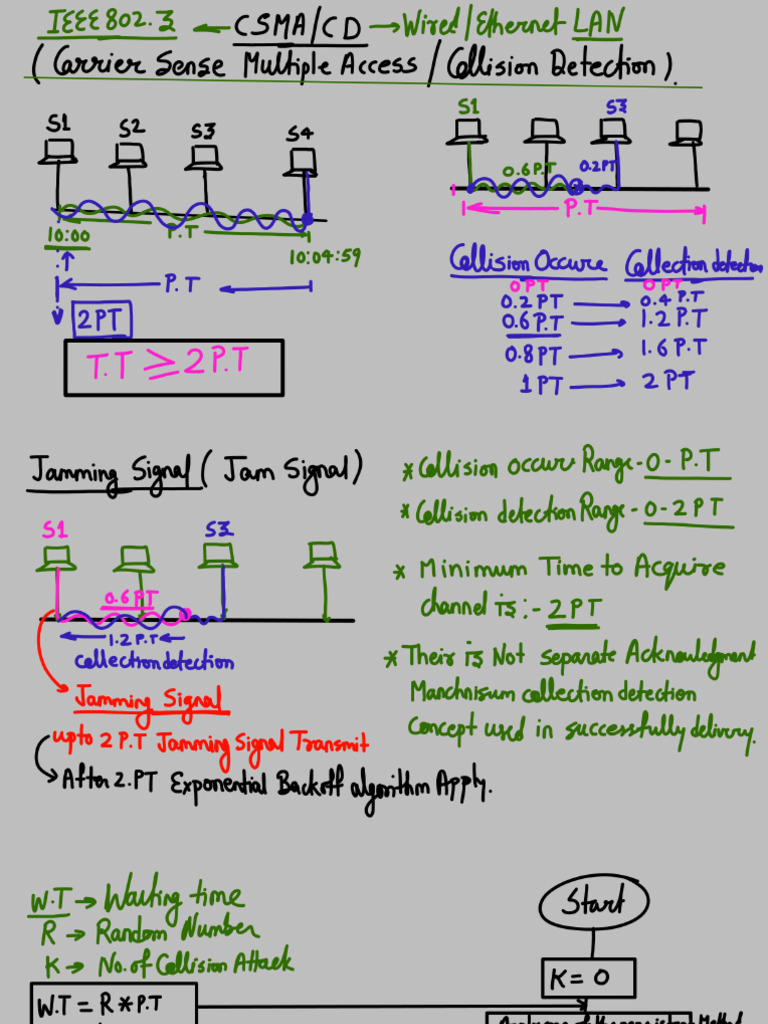 IEEE 802.3 ← CSMA/CD → Wired/Ethernet LAN
(Carrier Sense Multiple Access / Collision Detection).
S1 S2 S3 S4
P.T
10:00
10:04:59
P.T
2PT
T.T ≥ 2P.T
S1 S3
0.6P.T 0.2PT
P.T
Collision Occure Collection detection
0PT 0PT
0.2PT → 0.4P.T
0.6P.T → 1.2P.T
0.8PT → 1.6P.T
1PT → 2PT
Jamming Signal (Jam Signal)
S1 S3
0.6PT
1.2P.T
collection detection
Jamming Signal
upto 2P.T Jamming Signal Transmit
After 2.PT Exponential Backoff algorithm Apply.
* Collision occur Range - 0 - P.T
* Collision detection Range - 0 - 2PT
* Minimum Time to Acquire
channel is :- 2PT
* Their is Not separate Acknowledgment
Manchnisum collection detection
Concept used in successfully delivery.
W.T → Waiting time
R → Random Number
K → No. of Collision Attack
W.T = R * P.T
Start
K = 0